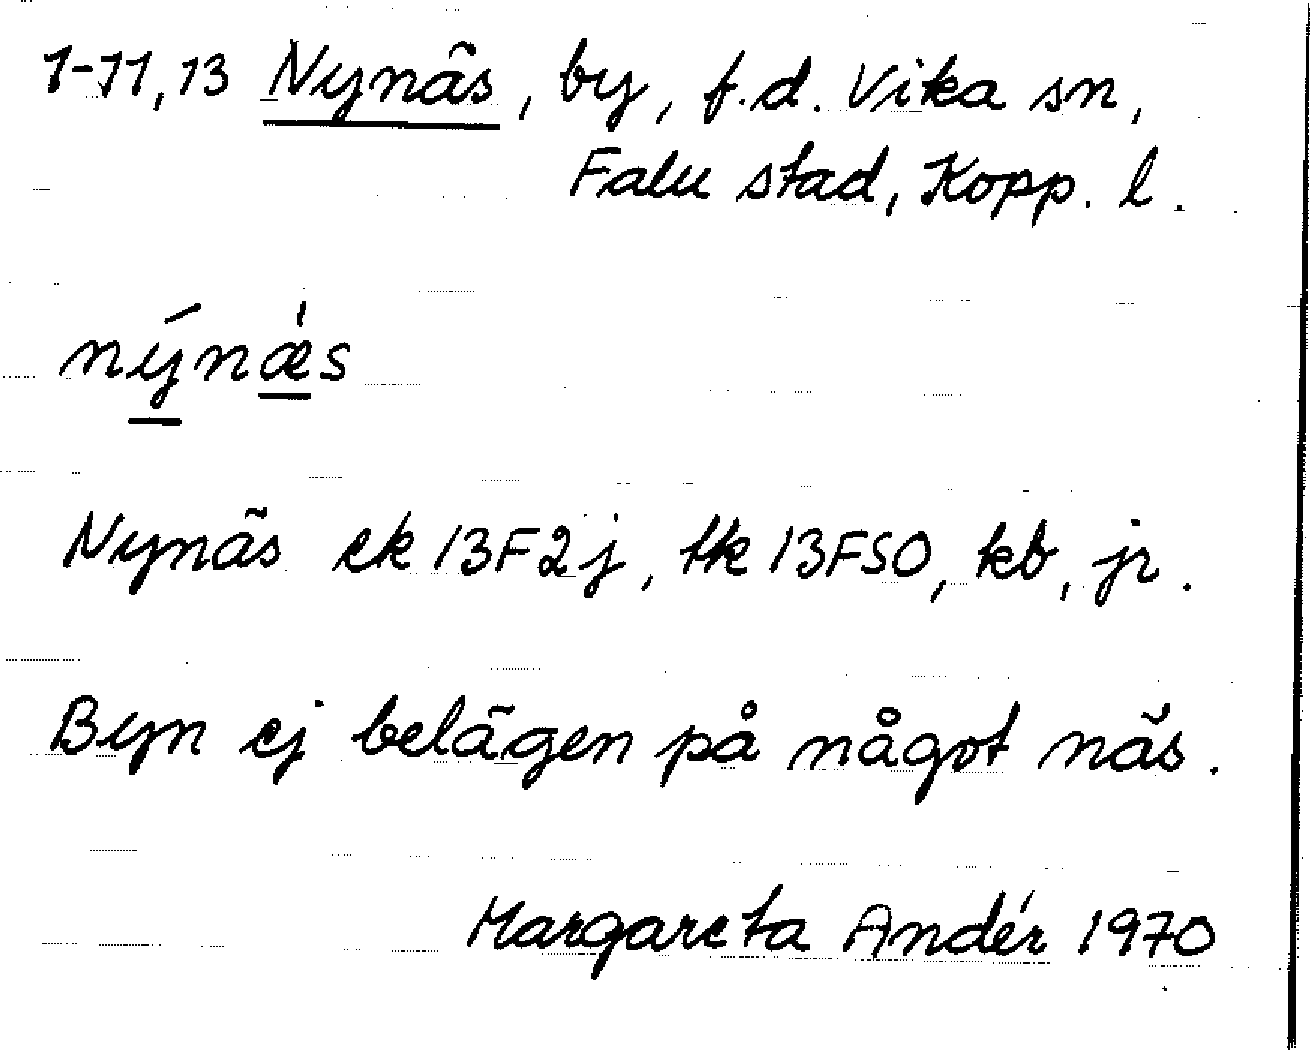 1-11,13 Nynäs, by, f.d. Vika sn,
Falu stad, Kopp. l.
nýnǽs
Nynäs ek 13F2j, tk 13FSO, kb, jr.
Byn ej belägen på något näs.
Margareta Andér 1970